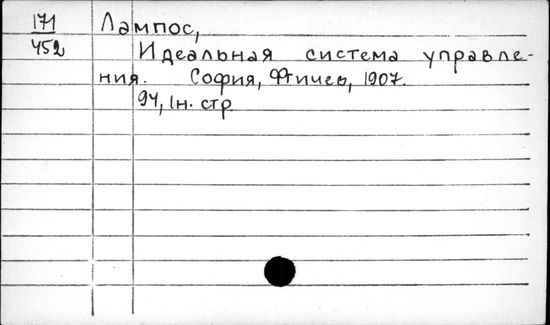 171
452
Лампос,
Идеальная система управле-
ния. София, Фтичев, 1907.
94, 1н. стр